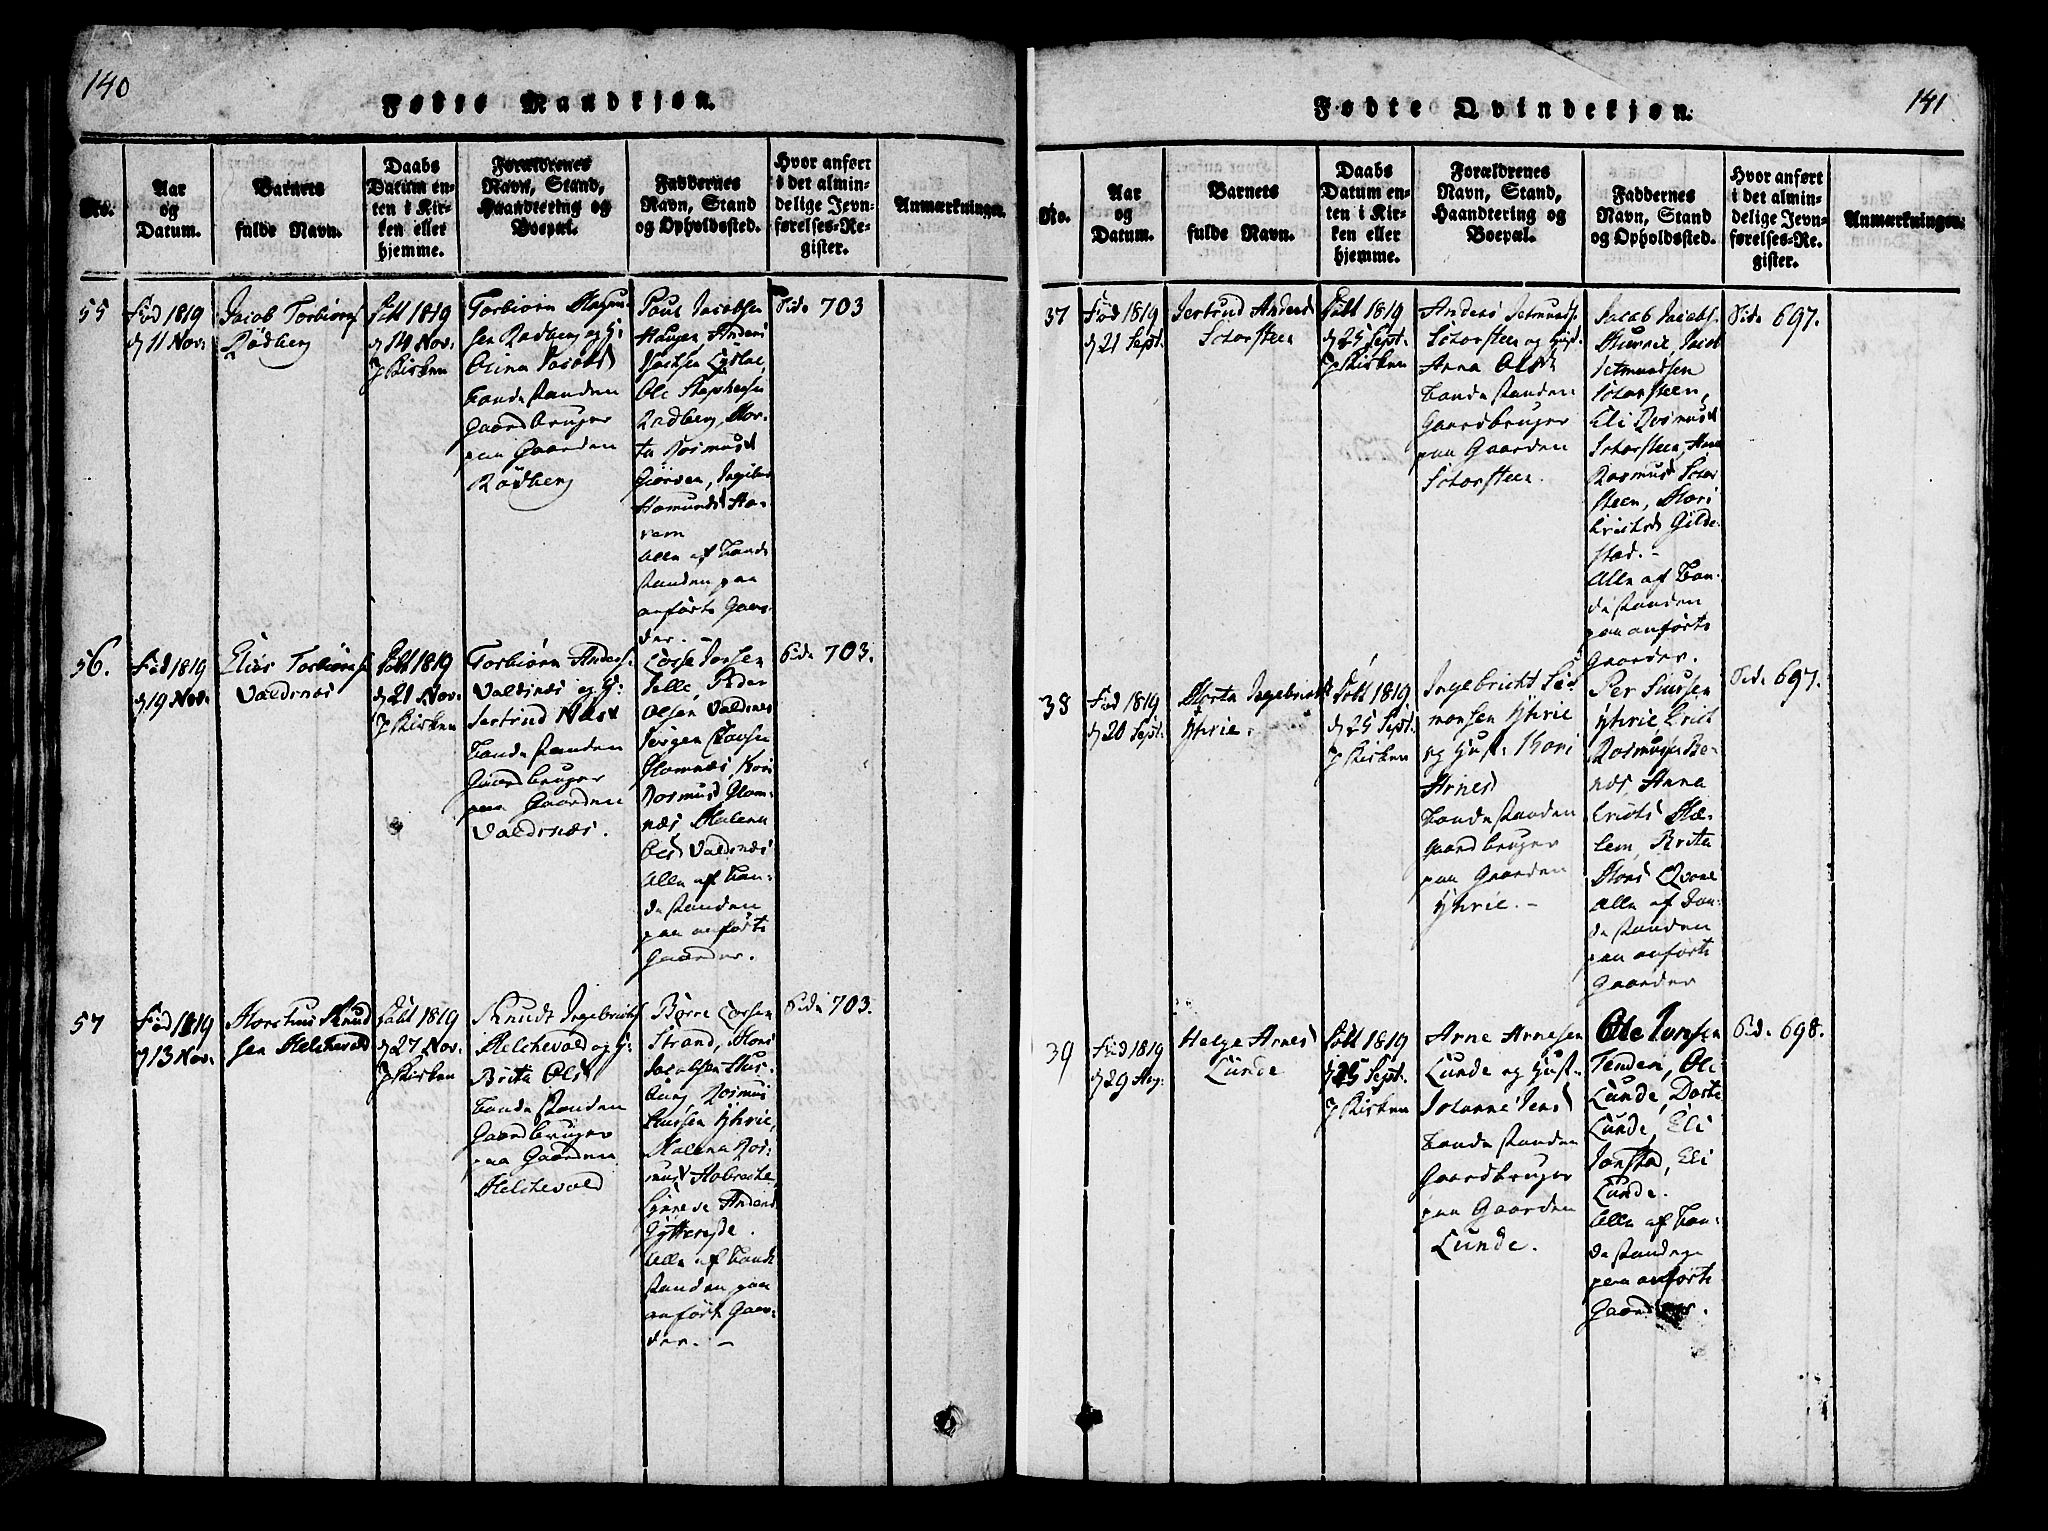 140
Fødte Mandkjøn.
No.
Aar
og
Datum.
Barnets
fulde Navn.
Daabs
Datum en-
ten i Kir-
ken eller
hjemme.
Forældrenes
Navn, Stand,
Haandtering og
Boepæl.
Faddernes
Navn, Stand
og Opholdssted.
Hvor anført
i det almin-
delige Jevn-
førelses-Re-
gister.
Anmærkninger.
55
Fød 1819
d 11 Nov.
Jacob Torbiørns
Rødberg
Døbt 1819
d 14 Nov.
J Kirken
Torbiørn
sen Rødberg og H:
Jacobs
Bondestanden
Gaardbruger
paa Gaarden
Rødberg
Poul Jacobsen
Haugen Anders
Ole Stephensen
Rødberg, Mar-
ta Rasmusd
Giørven, Ingebor
Hamunds Ha-
rem
Alle af Bonde
standen paa
anførte Gaar-
der. –
Side 703
56.
Fød 1819
d 19 Nov.
Elias Torbiørns
Valdsnæs
Døbt 1819
d 21 Nov.
J Kirken
Torbiørn Anders.
Valdsnæs og H:
Jertrud Nilsd
Bondestanden
Gaardbruger
paa Gaarden
Valdsnæs.
Lasse Jonsen
Peder
Olsen Valdsnæs
Jørgen Clausen
Glomnæs, Kari
Rasmusd Glom-
næs, Malena
Olsd Valdsnæs
Alle af Bon-
destanden
paa anførte
Gaarder.
Side 703.
57
Fød 1819
d 13 Nov.
Knud
sen Melchevold
Døbt 1819
d 27 Nov.
J Kirken
Knudt Ingebrigts
Melchevold og H:
Brita Olsd
Bondestanden
Gaardbruger
paa Gaarden
Melchevold
Børre Larsen
Strand, Hans
Jacobsen Mus-
Rasmus
Ytrie,
Malena Ras-
musd
Synneve Andersd
Alle af Bonde
standen paa
anførte Gaar-
der. –
Side 703.
141
Fødte Qvindekjøn.
No.
Aar
og
Datum.
Barnets
fulde Navn.
Daabs
Datum en-
ten i Kir-
ken eller
hjemme.
Forældrenes
Navn, Stand,
Haandtering og
Boepæl.
Faddernes
Navn, Stand
og Opholdssted.
Hvor anført
i det almin-
delige Jevn-
førelses-Re-
gister.
Anmærkninger.
37
Fød 1819
d 21 Sept.
Jertrud Andersd
Storsteen
Døbt 1819
d 25 Sept.
J Kirken
Anders Jetmunds.
Storsteen og Hust.
Anna Olsdt
Bondestanden
Gaardbruger
paa Gaarden
Storsteen.
Jacob Jacobs.
Jacob
Jetmundsen
Storsteen,
Eli Rasmusd
Storsteen, Hans
Rasmusd Stor
steen, Mari
Gilde-
stad. –
Alle af Bon-
destanden
paa anførte
Gaarder.
Side 697.
38
Fød 1819
d 20 Sept.
Marta Ingebrichts
Ytrie.
Døbt 1819.
d 25 Sept.
J Kirken
Ingebricht Si-
monsen Ytrie
og Hust. Kari
Arnesd
Bondestanden
Gaardbruger
paa Gaarden
Ytrie. –
Per
Ytrie Erich
Rasmusen Be-
næs Anna
Erichs Mæ-
lem, Brita
Hans
Alle af Bon-
destanden
paa anførte
Gaarder
Side 697.
39
Fød 1819
d 29 Aug.
Helge Arnesd
Lunde
Døbt 1819
d 25 Sept.
J Kirken
Arne Arnesen
Lunde og Hust.
Johanne Jensd
Bondestanden
Gaardbruger
paa Gaarden
Lunde.
Ole Jonsen
Tenden, Ole
Lunde, Dorte
Lunde, Eli
Jonstad, Eli
Lunde.
Alle af Bon-
destanden
paa anførte
Gaarder.
Side 698.